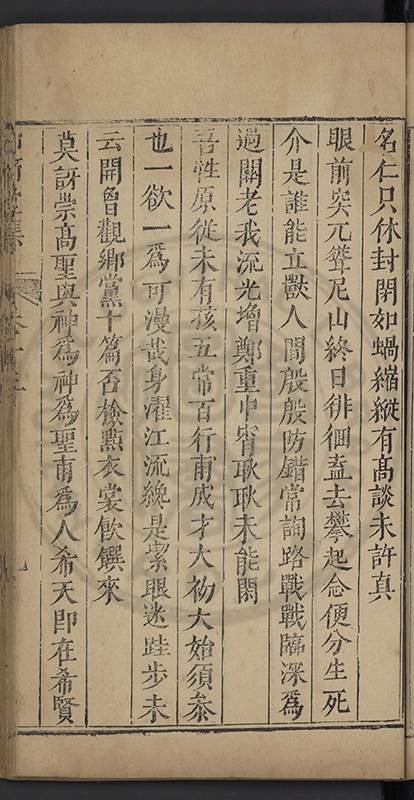 名仁只休封閉如蝸縮縱有高談未許真
眼前突兀聳尼山終日徘徊盍去攀起念便分生死
介是誰能立獸人間殷殷防錯常詢路戰戰臨深為
過關老我流光增鄭重中宵耿耿未能閑
吾性原從未有孩五常百行甫成才大初大始須叅
也一欲一為可漫哉身濯江流纔是潔眼迷跬步未
云開魯觀鄉黨十篇否檢點衣裳飲饌來
莫訝崇高聖與神為神為聖甫為人希天即在希賢